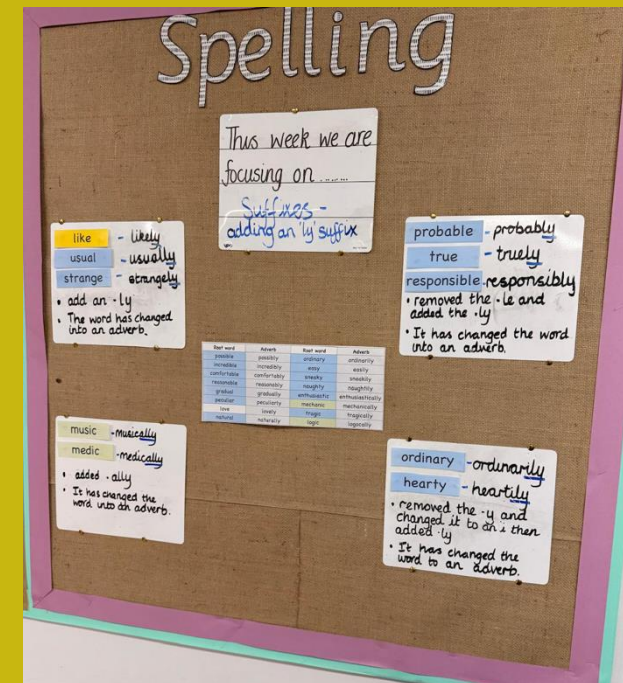 Spelling
This week we are
focusing on ........
Suffixes -
adding an 'ly' suffix
like - likely
usual - usually
strange - strangely
• add an -ly
• The word has changed
into an adverb.
probable - probably
true - truely
responsible - responsibly
• removed the -le and
added the -ly
• It has changed the word
into an adverb.
Root word Adverb Root word Adverb
possible possibly ordinary ordinarily
incredible incredibly easy easily
comfortable comfortably sneaky sneakily
reasonable reasonably naughty naughtily
gradual gradually enthusiastic enthusiastically
peculiar peculiarly mechanic mechanically
love lovely tragic tragically
natural naturally logic logically
music - musically
medic - medically
• added -ally
• It has changed the
word into an adverb.
ordinary - ordinarily
hearty - heartily
• removed the -y and
changed it to an i then
added -ly
• It has changed the
word to an adverb.